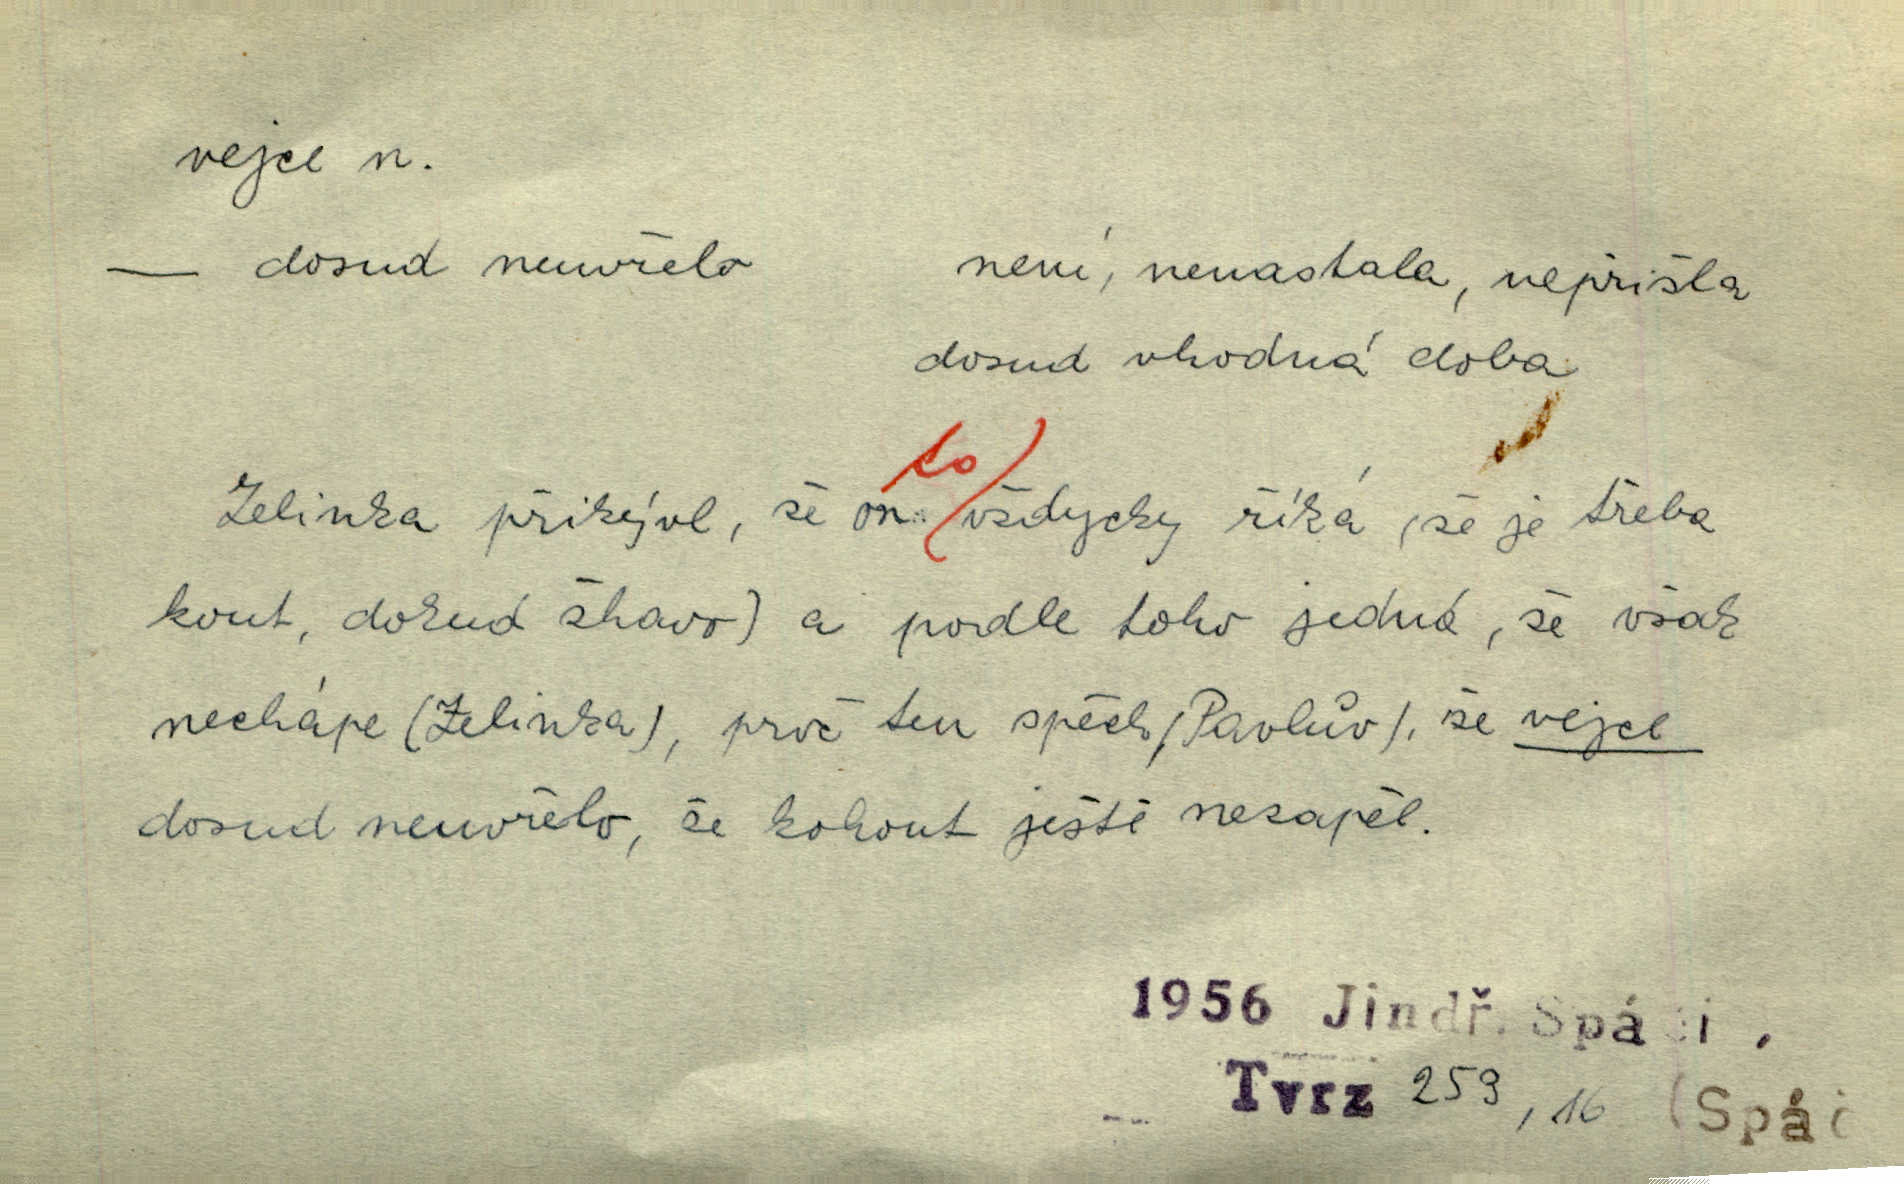 vejce n.
— dosud neuvřelo není, nenastala, nepřišla
dosud vhodná doba
to
Zelinka přikývl, že on vždycky říká, že je třeba
kout, dokud žhavo) a podle toho jedná, že však
nechápe (Zelinka), proč ten spěch (Pavlův), že vejce
dosud neuvřelo, že kohout ještě nezapěl.
1956 Jindř. Spáčil,
Tvrz 259, 16 (Spáč